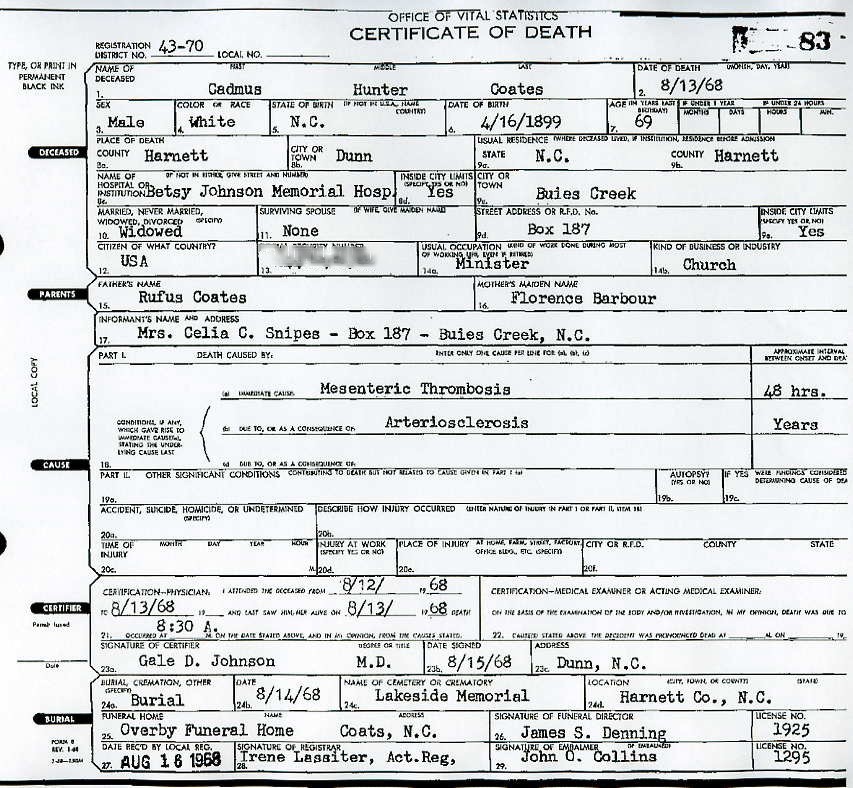 OFFICE OF VITAL STATISTICS
CERTIFICATE OF DEATH
83
REGISTRATION DISTRICT NO. 43-70 LOCAL NO.
TYPE, OR PRINT IN PERMANENT BLACK INK
NAME OF DECEASED FIRST MIDDLE LAST DATE OF DEATH (MONTH, DAY, YEAR)
1. Cadmus Hunter Coates 2. 8/13/68
SEX COLOR OR RACE STATE OF BIRTH (IF NOT IN U.S.A., NAME COUNTRY) DATE OF BIRTH AGE (IN YEARS LAST BIRTHDAY) IF UNDER 1 YEAR IF UNDER 24 HOURS
MONTHS DAYS HOURS MIN.
3. Male 4. White 5. N.C. 6. 4/16/1899 7. 69
DECEASED
PLACE OF DEATH USUAL RESIDENCE (WHERE DECEASED LIVED, IF INSTITUTION, RESIDENCE BEFORE ADMISSION
COUNTY Harnett CITY OR TOWN Dunn STATE N.C. COUNTY Harnett
8a. 8b. 9a. 9b.
NAME OF HOSPITAL OR INSTITUTION (IF NOT IN EITHER, GIVE STREET AND NUMBER) INSIDE CITY LIMITS (SPECIFY YES OR NO) CITY OR TOWN
8c. Betsy Johnson Memorial Hosp. 8d. Yes 9c. Buies Creek
MARRIED, NEVER MARRIED, WIDOWED, DIVORCED (SPECIFY) SURVIVING SPOUSE (IF WIFE, GIVE MAIDEN NAME) STREET ADDRESS OR R.F.D. No. INSIDE CITY LIMITS (SPECIFY YES OR NO)
10. Widowed 11. None 9d. Box 187 9e. Yes
CITIZEN OF WHAT COUNTRY? USUAL OCCUPATION (KIND OF WORK DONE DURING MOST OF WORKING LIFE, EVEN IF RETIRED) KIND OF BUSINESS OR INDUSTRY
12. USA 13. 14a. Minister 14b. Church
PARENTS
FATHER'S NAME MOTHER'S MAIDEN NAME
15. Rufus Coates 16. Florence Barbour
INFORMANT'S NAME AND ADDRESS
17. Mrs. Celia C. Snipes - Box 187 - Buies Creek, N.C.
LOCAL COPY
PART I. DEATH CAUSED BY: ENTER ONLY ONE CAUSE PER LINE FOR (a), (b), (c) APPROXIMATE INTERVAL BETWEEN ONSET AND DEA
(a) IMMEDIATE CAUSE: Mesenteric Thrombosis 48 hrs.
CONDITIONS, IF ANY, WHICH GAVE RISE TO IMMEDIATE CAUSE(A), STATING THE UNDERLYING CAUSE LAST
(b) DUE TO, OR AS A CONSEQUENCE OF: Arteriosclerosis Years
18. (c) DUE TO, OR AS A CONSEQUENCE OF:
CAUSE
PART II. OTHER SIGNIFICANT CONDITIONS CONTRIBUTING TO DEATH BUT NOT RELATED TO CAUSE GIVEN IN PART I (a) AUTOPSY? (YES OR NO) IF YES WERE FINDINGS CONSIDERED DETERMINING CAUSE OF DEA
19a. 19b. 19c.
ACCIDENT, SUICIDE, HOMICIDE, OR UNDETERMINED (SPECIFY) DESCRIBE HOW INJURY OCCURRED (ENTER NATURE OF INJURY IN PART I OR PART II, ITEM 18)
20a. 20b.
TIME OF INJURY MONTH DAY YEAR HOUR INJURY AT WORK (SPECIFY YES OR NO) PLACE OF INJURY AT HOME, FARM, STREET, FACTORY, OFFICE BLDG., ETC. (SPECIFY) CITY OR R.F.D. COUNTY STATE
20c. M. 20d. 20e. 20f.
CERTIFIER
CERTIFICATION—PHYSICIAN: I ATTENDED THE DECEASED FROM 8/12/ 19 68 CERTIFICATION—MEDICAL EXAMINER OR ACTING MEDICAL EXAMINER:
TO 8/13/68 19 AND LAST SAW HIM/HER ALIVE ON 8/13/ 1968 DEATH ON THE BASIS OF THE EXAMINATION OF THE BODY AND/OR INVESTIGATION, IN MY OPINION, DEATH WAS DUE TO
8:30 A.
21. OCCURRED AT M. ON THE DATE STATED ABOVE, AND IN MY OPINION, FROM THE CAUSES STATED. 22. CAUSE(S) STATED ABOVE THE DECEDENT WAS PRONOUNCED DEAD AT M. ON 19
Permit Issued
Date
SIGNATURE OF CERTIFIER DEGREE OR TITLE DATE SIGNED ADDRESS
23a. Gale D. Johnson M.D. 23b. 8/15/68 23c. Dunn, N.C.
BURIAL, CREMATION, OTHER (SPECIFY) DATE NAME OF CEMETERY OR CREMATORY LOCATION (CITY, TOWN, OR COUNTY) (STATE)
24a. Burial 24b. 8/14/68 24c. Lakeside Memorial 24d. Harnett Co., N.C.
BURIAL
FUNERAL HOME NAME ADDRESS SIGNATURE OF FUNERAL DIRECTOR LICENSE NO.
25. Overby Funeral Home Coats, N.C. 26. James S. Denning 1925
FORM 8
DATE REC'D BY LOCAL REG. SIGNATURE OF REGISTRAR SIGNATURE OF EMBALMER (IF EMBALMED) LICENSE NO.
27. AUG 16 1968 28. Irene Lassiter, Act.Reg, 29. John O. Collins 1295